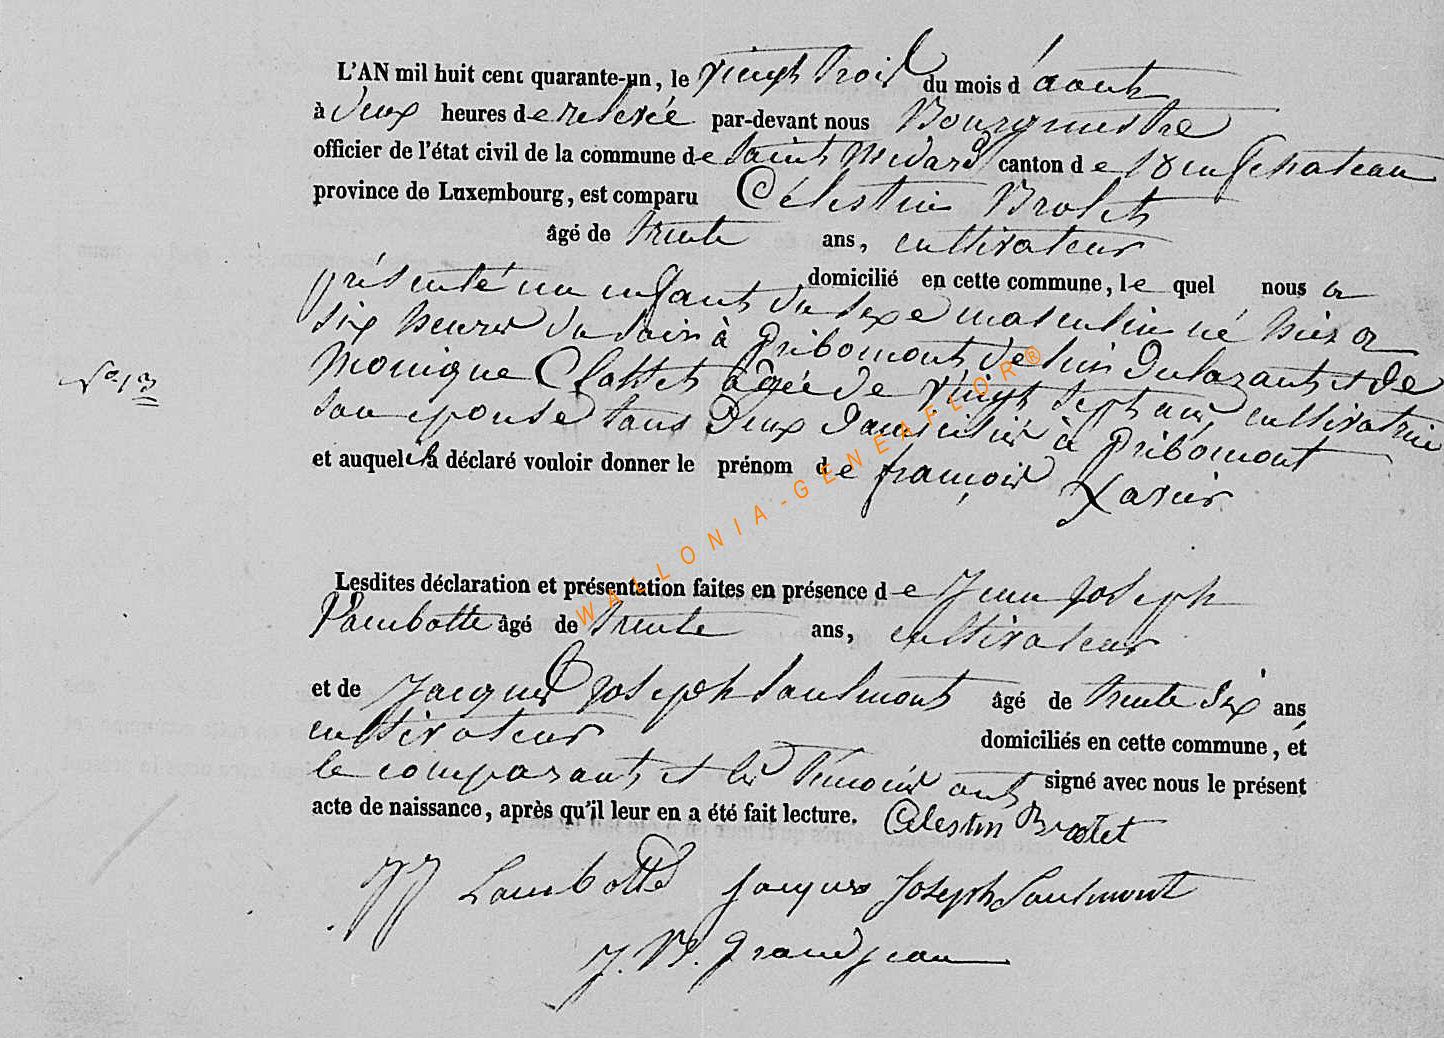 L'AN mil huit cent quarante-un, le vingt trois du mois d'août
à deux heures de relevée par-devant nous Bourgmestre
officier de l'état civil de la commune de Saint Médard canton de neufchateau
province de Luxembourg, est comparu Célestin Brolet
âgé de trente ans, cultivateur
domicilié en cette commune, le quel nous a
présenté un enfant du sexe masculin né hier a
six heures du soir à Gribomont, de lui déclarant et de
Monique agée de vingt sept ans, cultivatrice
son epouse tous deux domiciliés à Gribomont
et auquel il a déclaré vouloir donner le prénom de françois Xavier
Lesdites déclaration et présentation faites en présence de Jean joseph
Lambotte âgé de trente ans, cultivateur
et de Jacques joseph Saulmont âgé de trente six ans,
cultivateur domiciliés en cette commune, et
le comparant et les témoins ont signé avec nous le présent
acte de naissance, après qu'il leur en a été fait lecture. Célestin Brolet
JJ Lambotte jacques Joseph Saulmont
J. B. Grandjean
No 13
WALLONIA-GENEAFLOR®